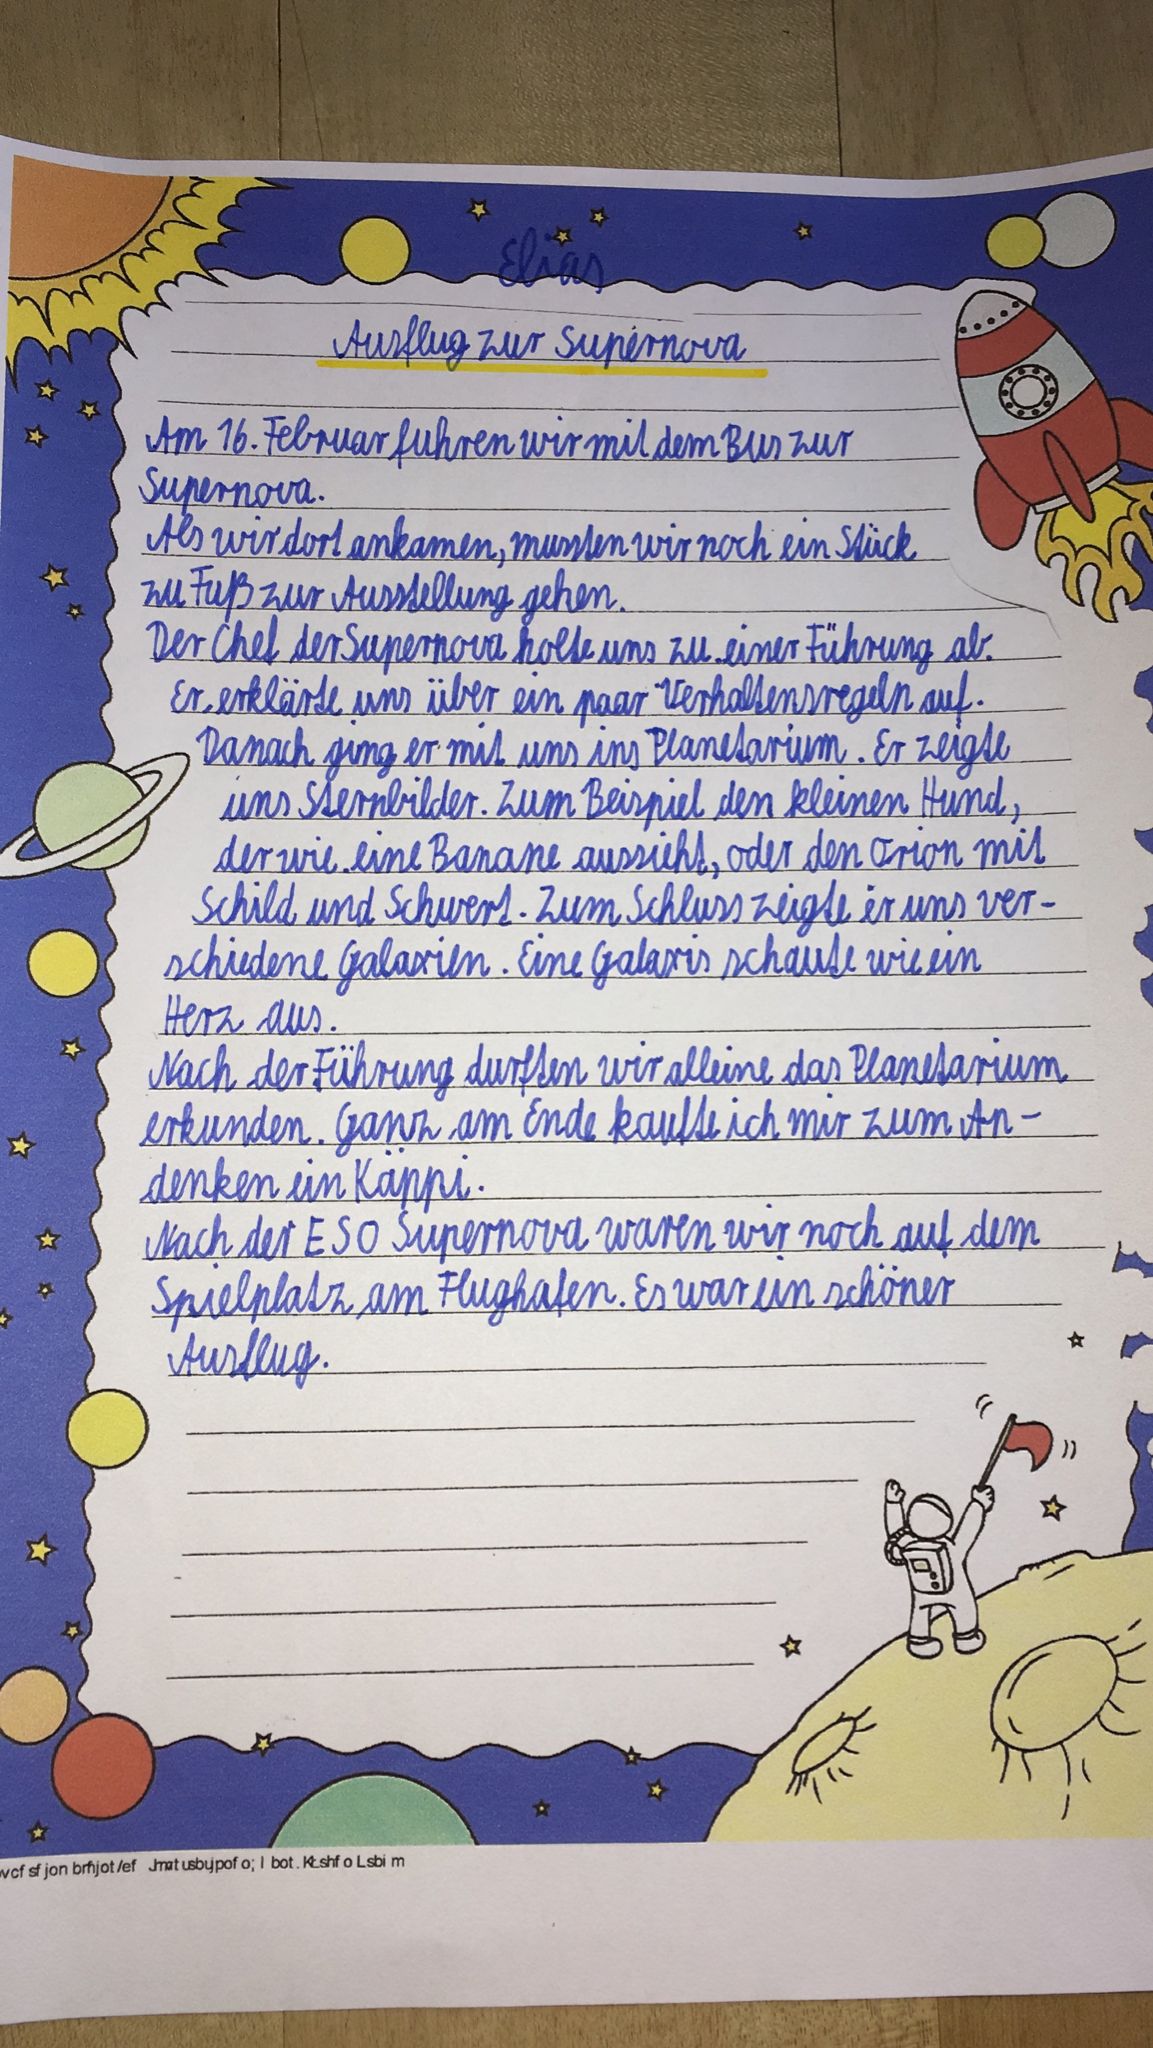 Elias
Ausflug zur Supernova
Am 16. Februar fuhren wir mit dem Bus zur
Supernova.
Als wir dort ankamen, mussten wir noch ein Stück
zu Fuß zur Ausstellung gehen.
Der Chef der Supernova holte uns zu einer Führung ab.
Er erklärte uns über ein paar Verhaltensregeln auf.
Danach ging er mit uns ins Planetarium. Er zeigte
uns Sternbilder. Zum Beispiel den kleinen Hund,
der wie eine Banane aussieht, oder den Orion mit
Schild und Schwert. Zum Schluss zeigte er uns ver-
schiedene Galaxien. Eine Galaxis schaute wie ein
Herz aus.
Nach der Führung durften wir alleine das Planetarium
erkunden. Ganz am Ende kaufte ich mir zum An-
denken ein Käppi.
Nach der ESO Supernova waren wir noch auf dem
Spielplatz am Flughafen. Es war ein schöner
Ausflug.